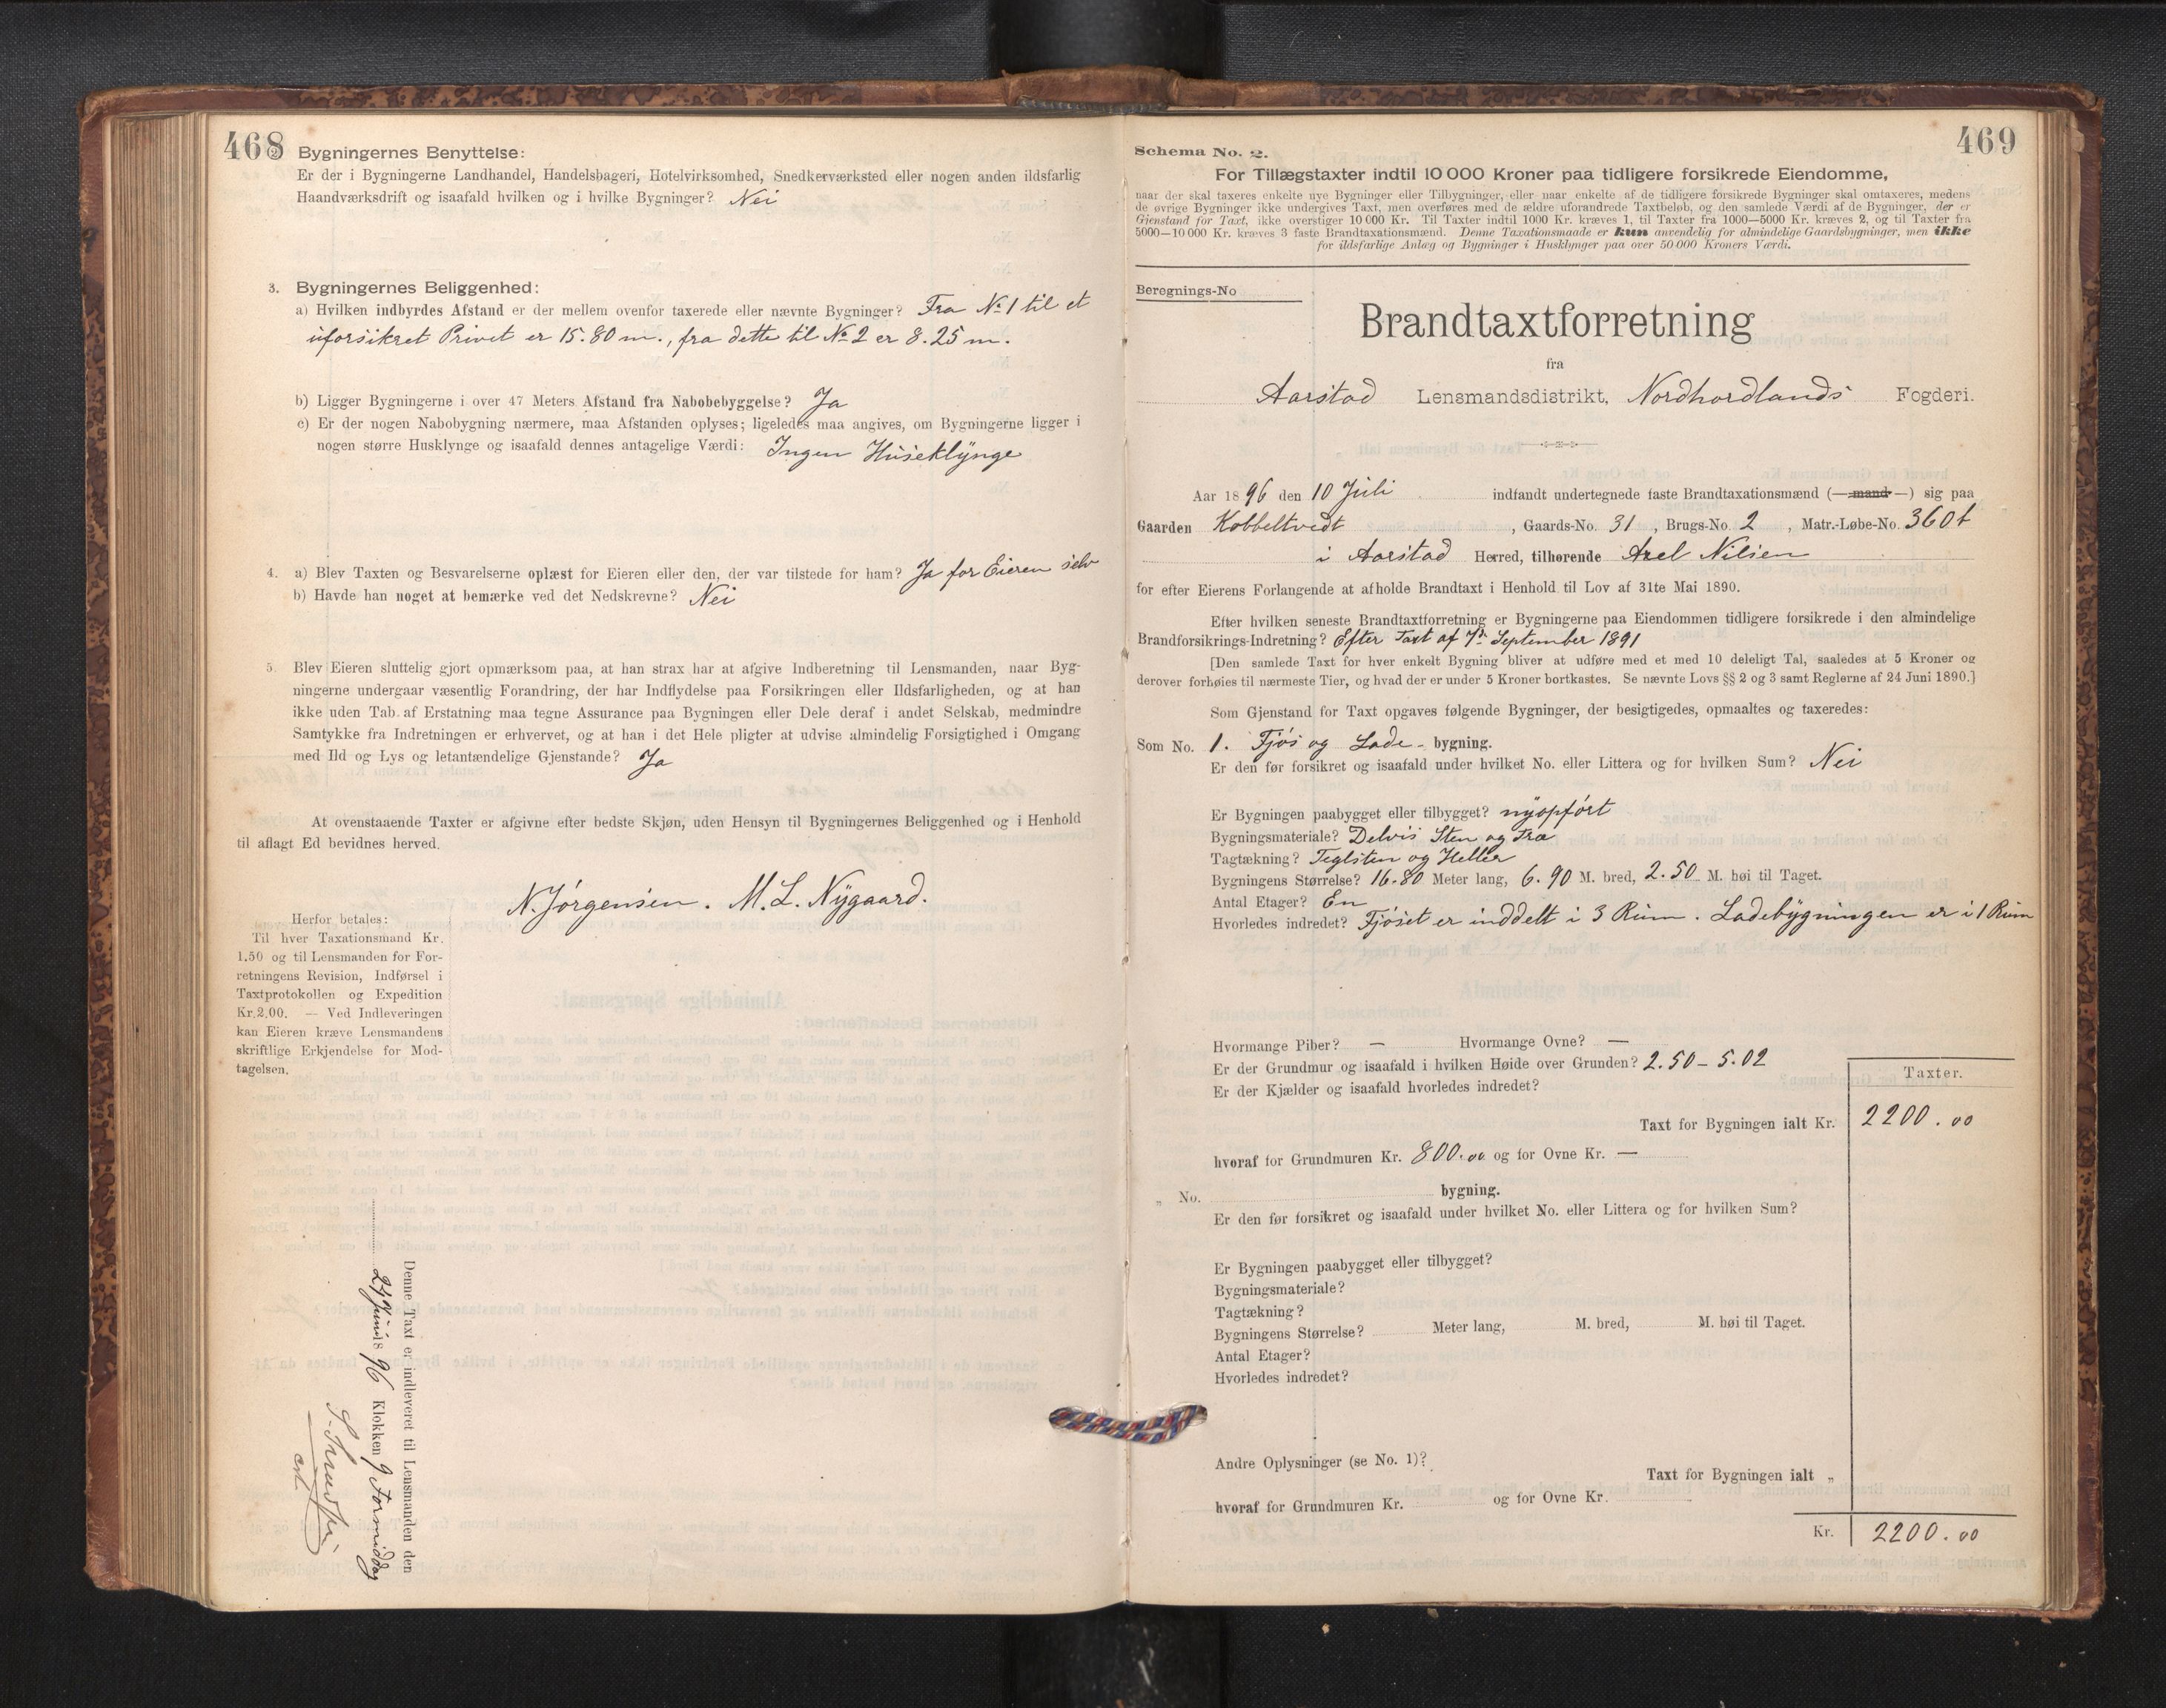 468
2 Bygningernes Benyttelse:
Er der i Bygningerne Landhandel, Handelsbageri, Hotelvirksomhed, Snedkerværksted eller nogen anden ildsfarlig
Haandværksdrift og isaafald hvilken og i hvilke Bygninger? Nei
3. Bygningernes Beliggenhed:
a) Hvilken indbyrdes Afstand er der mellem ovenfor taxerede eller nævnte Bygninger? Fra No 1 til et
uforsikret Privet er 15.80 m., fra dette til No 2 er 8.25 m.
b) Ligger Bygningerne i over 47 Meters Afstand fra Nabobebyggelse? Ja
c) Er der nogen Nabobygning nærmere, maa Afstanden oplyses; ligeledes maa angives, om Bygningerne ligger i
nogen større Husklynge og isaafald dennes antagelige Værdi: Ingen Huseklynge
4. a) Blev Taxten og Besvarelserne oplæst for Eieren eller den, der var tilstede for ham? Ja for Eieren selv
b) Havde han noget at bemærke ved det Nedskrevne? Nei
5. Blev Eieren sluttelig gjort opmærksom paa, at han strax har at afgive Indberetning til Lensmanden, naar Byg-
ningerne undergaar væsentlig Forandring, der har Indflydelse paa Forsikringen eller Ildsfarligheden, og at han
ikke uden Tab af Erstatning maa tegne Assurance paa Bygningen eller Dele deraf i andet Selskab, medmindre
Samtykke fra Indretningen er erhvervet, og at han i det Hele pligter at udvise almindelig Forsigtighed i Omgang
med Ild og Lys og letantændelige Gjenstande? Ja
At ovenstaaende Taxter er afgivne efter bedste Skjøn, uden Hensyn til Bygningernes Beliggenhed og i Henhold
til aflagt Ed bevidnes herved.
N. Jörgensen. M. L. Nygaard.
Herfor betales:
Til hver Taxationsmand Kr.
1.50 og til Lensmanden for For-
retningens Revision, Indførsel i
Taxtprotokollen og Expedition
Kr. 2.00. — Ved Indleveringen
kan Eieren kræve Lensmandens
skriftlige Erkjendelse for Mod-
tagelsen.
Denne Taxt er indleveret til Lensmanden den
24 Juni 18 96 Klokken 9 Formiddag
469
Schema No. 2.
For Tillægstaxter indtil 10 000 Kroner paa tidligere forsikrede Eiendomme,
naar der skal taxeres enkelte nye Bygninger eller Tilbygninger, eller naar enkelte af de tidligere forsikrede Bygninger skal omtaxeres, medens
de øvrige Bygninger ikke undergives Taxt, men overføres med de ældre uforandrede Taxtbeløb, og den samlede Værdi af de Bygninger, der er
Gjenstand for Taxt, ikke overstiger 10 000 Kr. Til Taxter indtil 1000 Kr. kræves 1, til Taxter fra 1000—5000 Kr. kræves 2, og til Taxter fra
5000—10 000 Kr. kræves 3 faste Brandtaxationsmænd. Denne Taxationsmaade er kun anvendelig for almindelige Gaardsbygninger, men ikke
for ildsfarlige Anlæg og Bygninger i Husklynger paa over 50 000 Kroners Værdi.
Beregnings-No
Brandtaxtforretning
fra
Aarstad Lensmandsdistrikt, Nordhordlands Fogderi.
Aar 18 96 den 10 Juli indfandt undertegnede faste Brandtaxationsmænd (— mand —) sig paa
Gaarden Kobbeltvedt, Gaards-No. 31, Brugs-No. 2, Matr.-Løbe-No. 360 t
i Aarstad Herred, tilhørende Axel Nilsen
for efter Eierens Forlangende at afholde Brandtaxt i Henhold til Lov af 31te Mai 1890.
Efter hvilken seneste Brandtaxtforretning er Bygningerne paa Eiendommen tidligere forsikrede i den almindelige
Brandforsikrings-Indretning? Efter Taxt af 7de September 1891
[Den samlede Taxt for hver enkelt Bygning bliver at udføre med et med 10 deleligt Tal, saaledes at 5 Kroner og
derover forhøies til nærmeste Tier, og hvad der er under 5 Kroner bortkastes. Se nævnte Lovs §§ 2 og 3 samt Reglerne af 24 Juni 1890.]
Som Gjenstand for Taxt opgaves følgende Bygninger, der besigtigedes, opmaaltes og taxeredes:
Som No. 1. Fjös og Lade- bygning.
Er den før forsikret og isaafald under hvilket No. eller Littera og for hvilken Sum? Nei
Er Bygningen paabygget eller tilbygget? nyopfört
Bygningsmateriale? Delvis Sten og Træ
Tagtækning? Teglsten og Heller
Bygningens Størrelse? 16.80 Meter lang, 6.90 M. bred, 2.50 M. høi til Taget.
Antal Etager? En
Hvorledes indredet? Fjöset er inddelt i 3 Rum. Ladebygningen er i 1 Rum
Hvormange Piber? — Hvormange Ovne? —
Er der Grundmur og isaafald i hvilken Høide over Grunden? 2.50 — 5.02
Er der Kjælder og isaafald hvorledes indredet?
Taxter.
Taxt for Bygningen ialt Kr. 2200.00
hvoraf for Grundmuren Kr. 800.00 og for Ovne Kr. —
„ No. bygning.
Er den før forsikret og isaafald under hvilket No. eller Littera og for hvilken Sum?
Er Bygningen paabygget eller tilbygget?
Bygningsmateriale?
Tagtækning?
Bygningens Størrelse? Meter lang, M. bred, M. høi til Taget.
Antal Etager?
Hvorledes indredet?
Andre Oplysninger (se No. 1)?
Taxt for Bygningen ialt „
hvoraf for Grundmuren Kr. og for Ovne Kr.
Kr. 2200.00